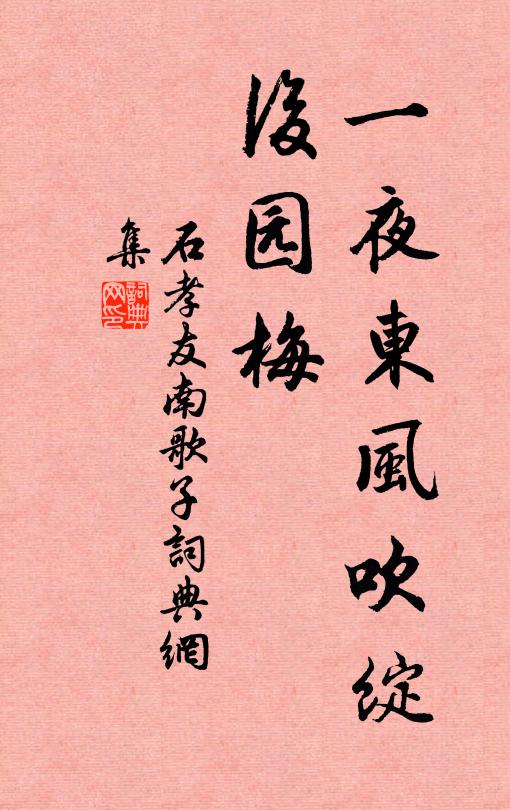 一夜東風吹綻
後园梅
石孝友南歌子詞典網
集
詞典
网印